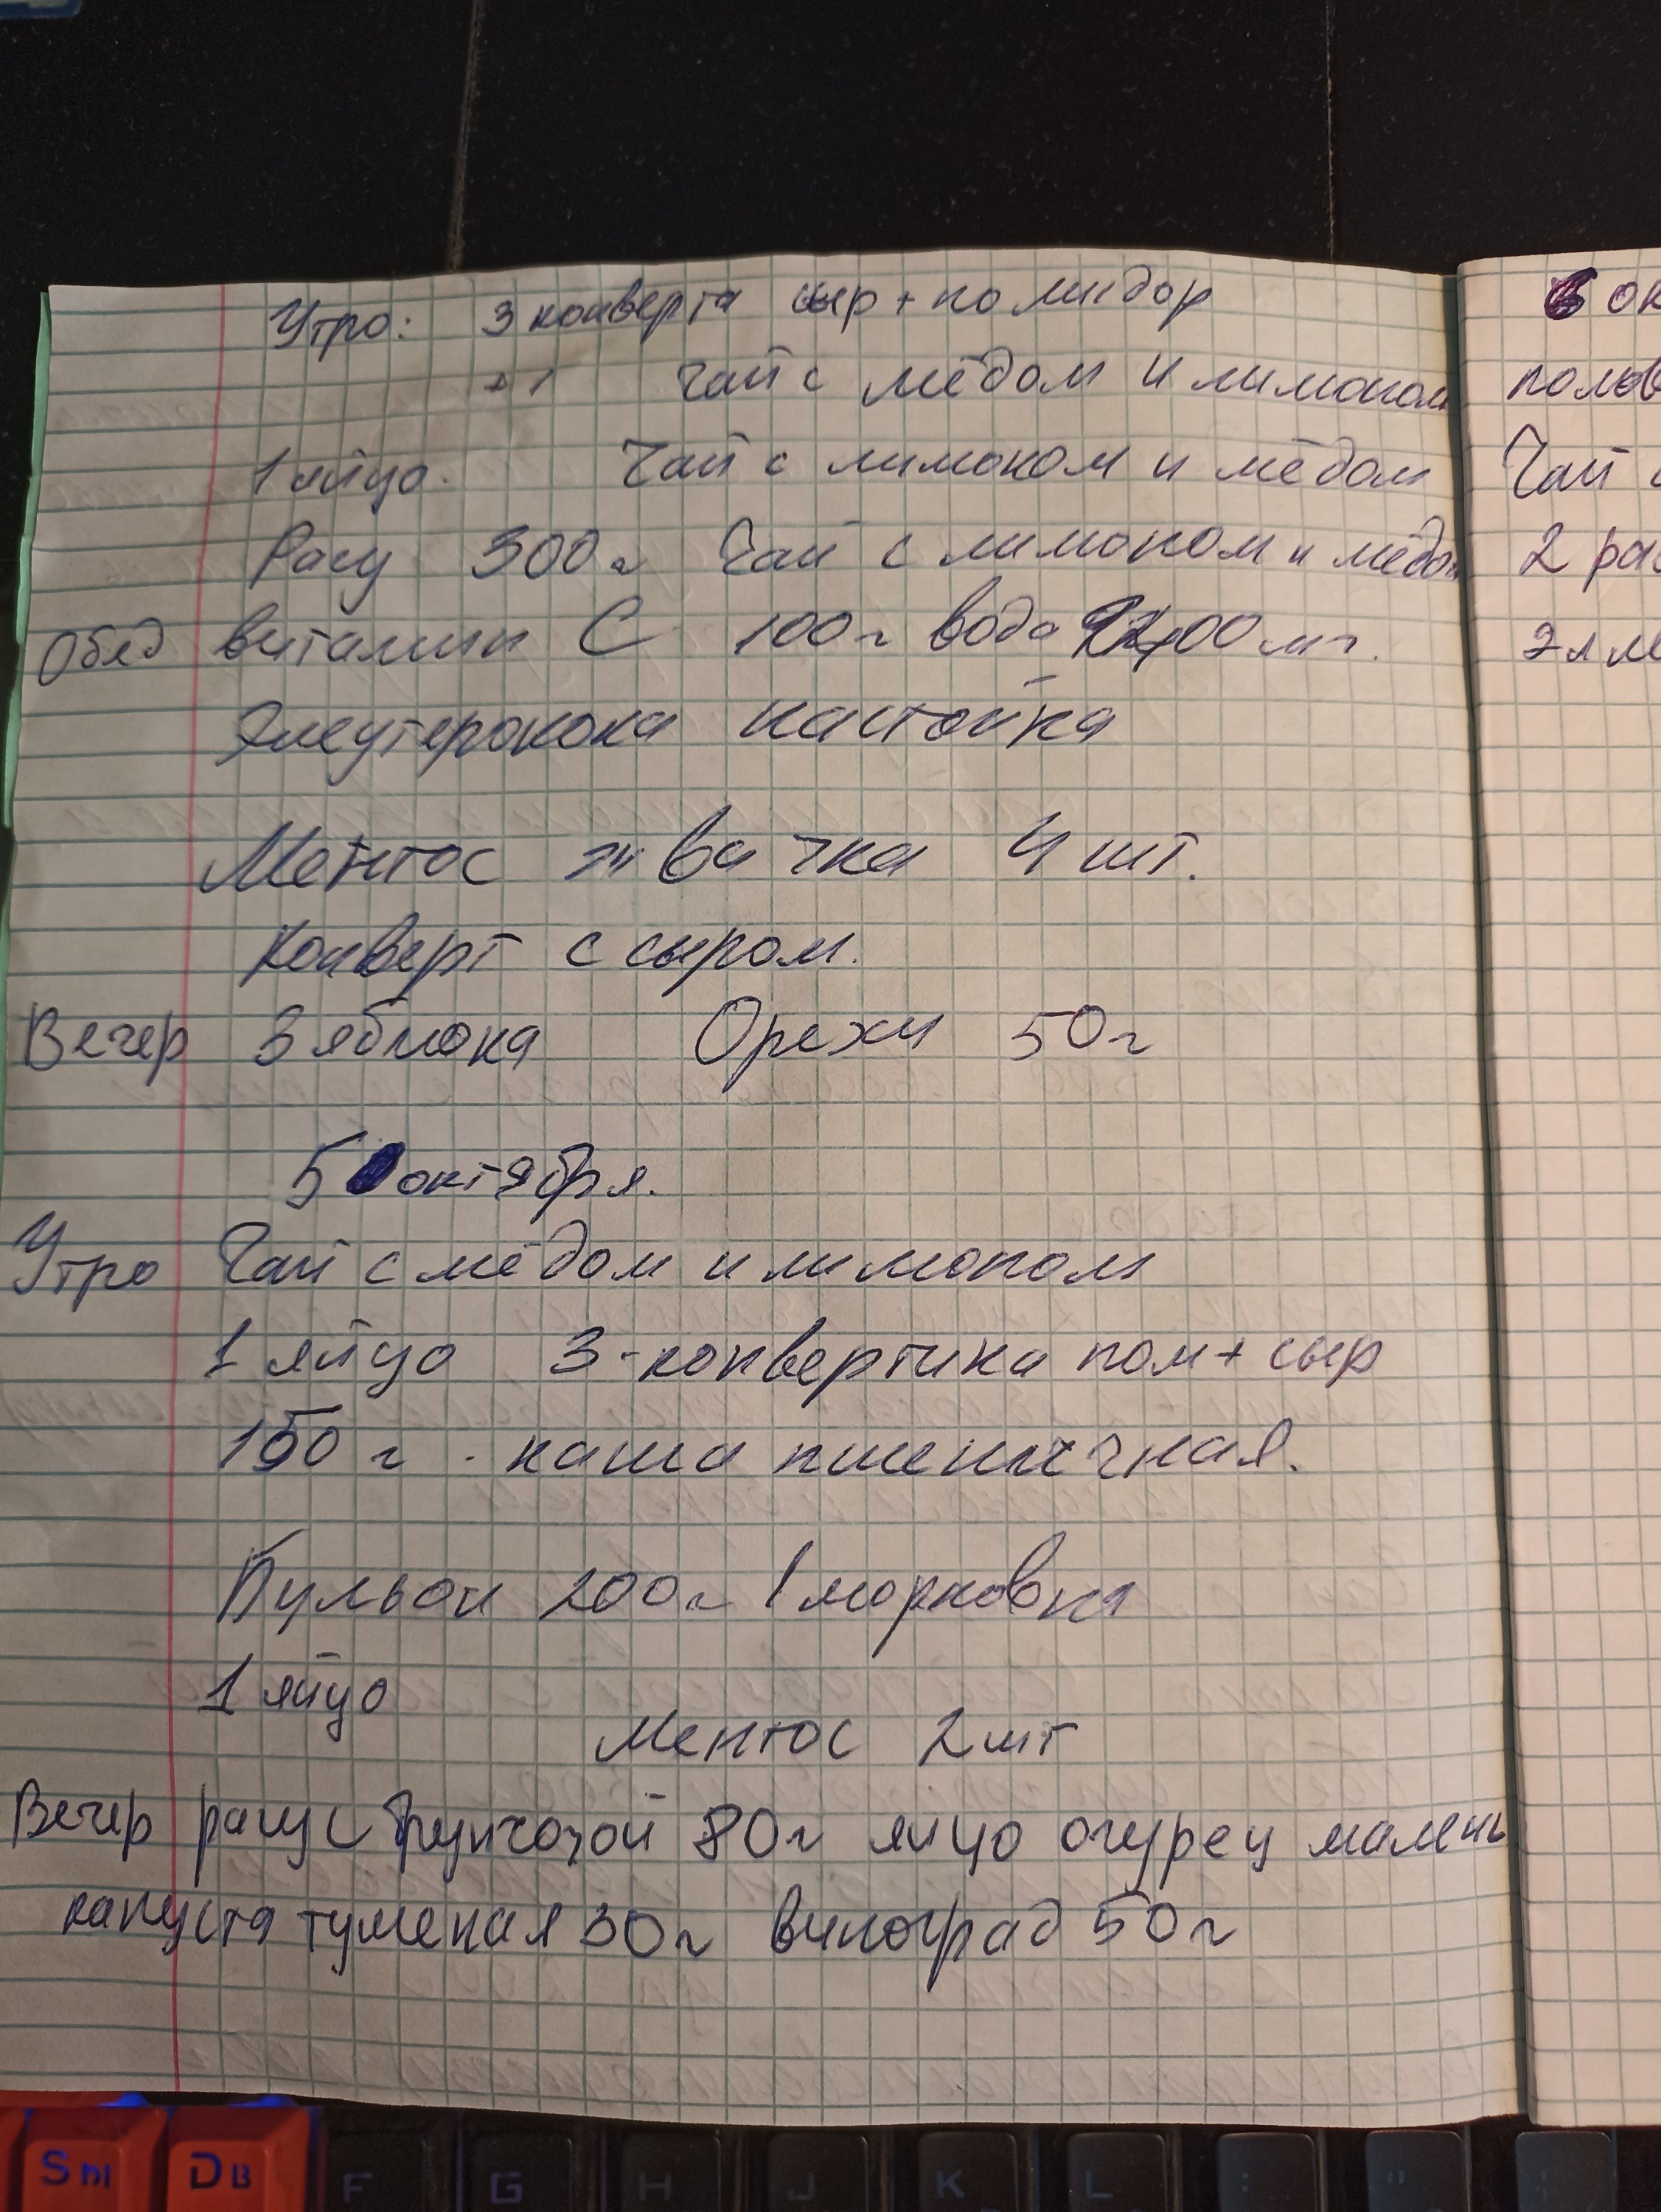 Утро: 3 конверта сыр + помидор
+ 1 чай с мёдом и лимоном
1 яйцо. Чай с лимоном и мёдом
Рагу 300 г Чай с лимоном и мёдом
Обед витамин С 100 г вода
Элеутерокока настойка
Ментос жвачка 4 шт.
Конверт с сыром.
Вечер 3 яблока Орехи 50 г
5 октября.
Утро Чай с мёдом и лимоном
1 яйцо 3-конвертика пом + сыр
150 г. каша пшеничная.
Бульон 200 г 1 морковка
1 яйцо
Ментос 2 шт
Вечер рагу с фунчозой 80 г яйцо огурец малень
капуста тушеная 30 г виноград 50 г
6 ок
Чай
2
S Ы
D В
F
G
H
J
K
L